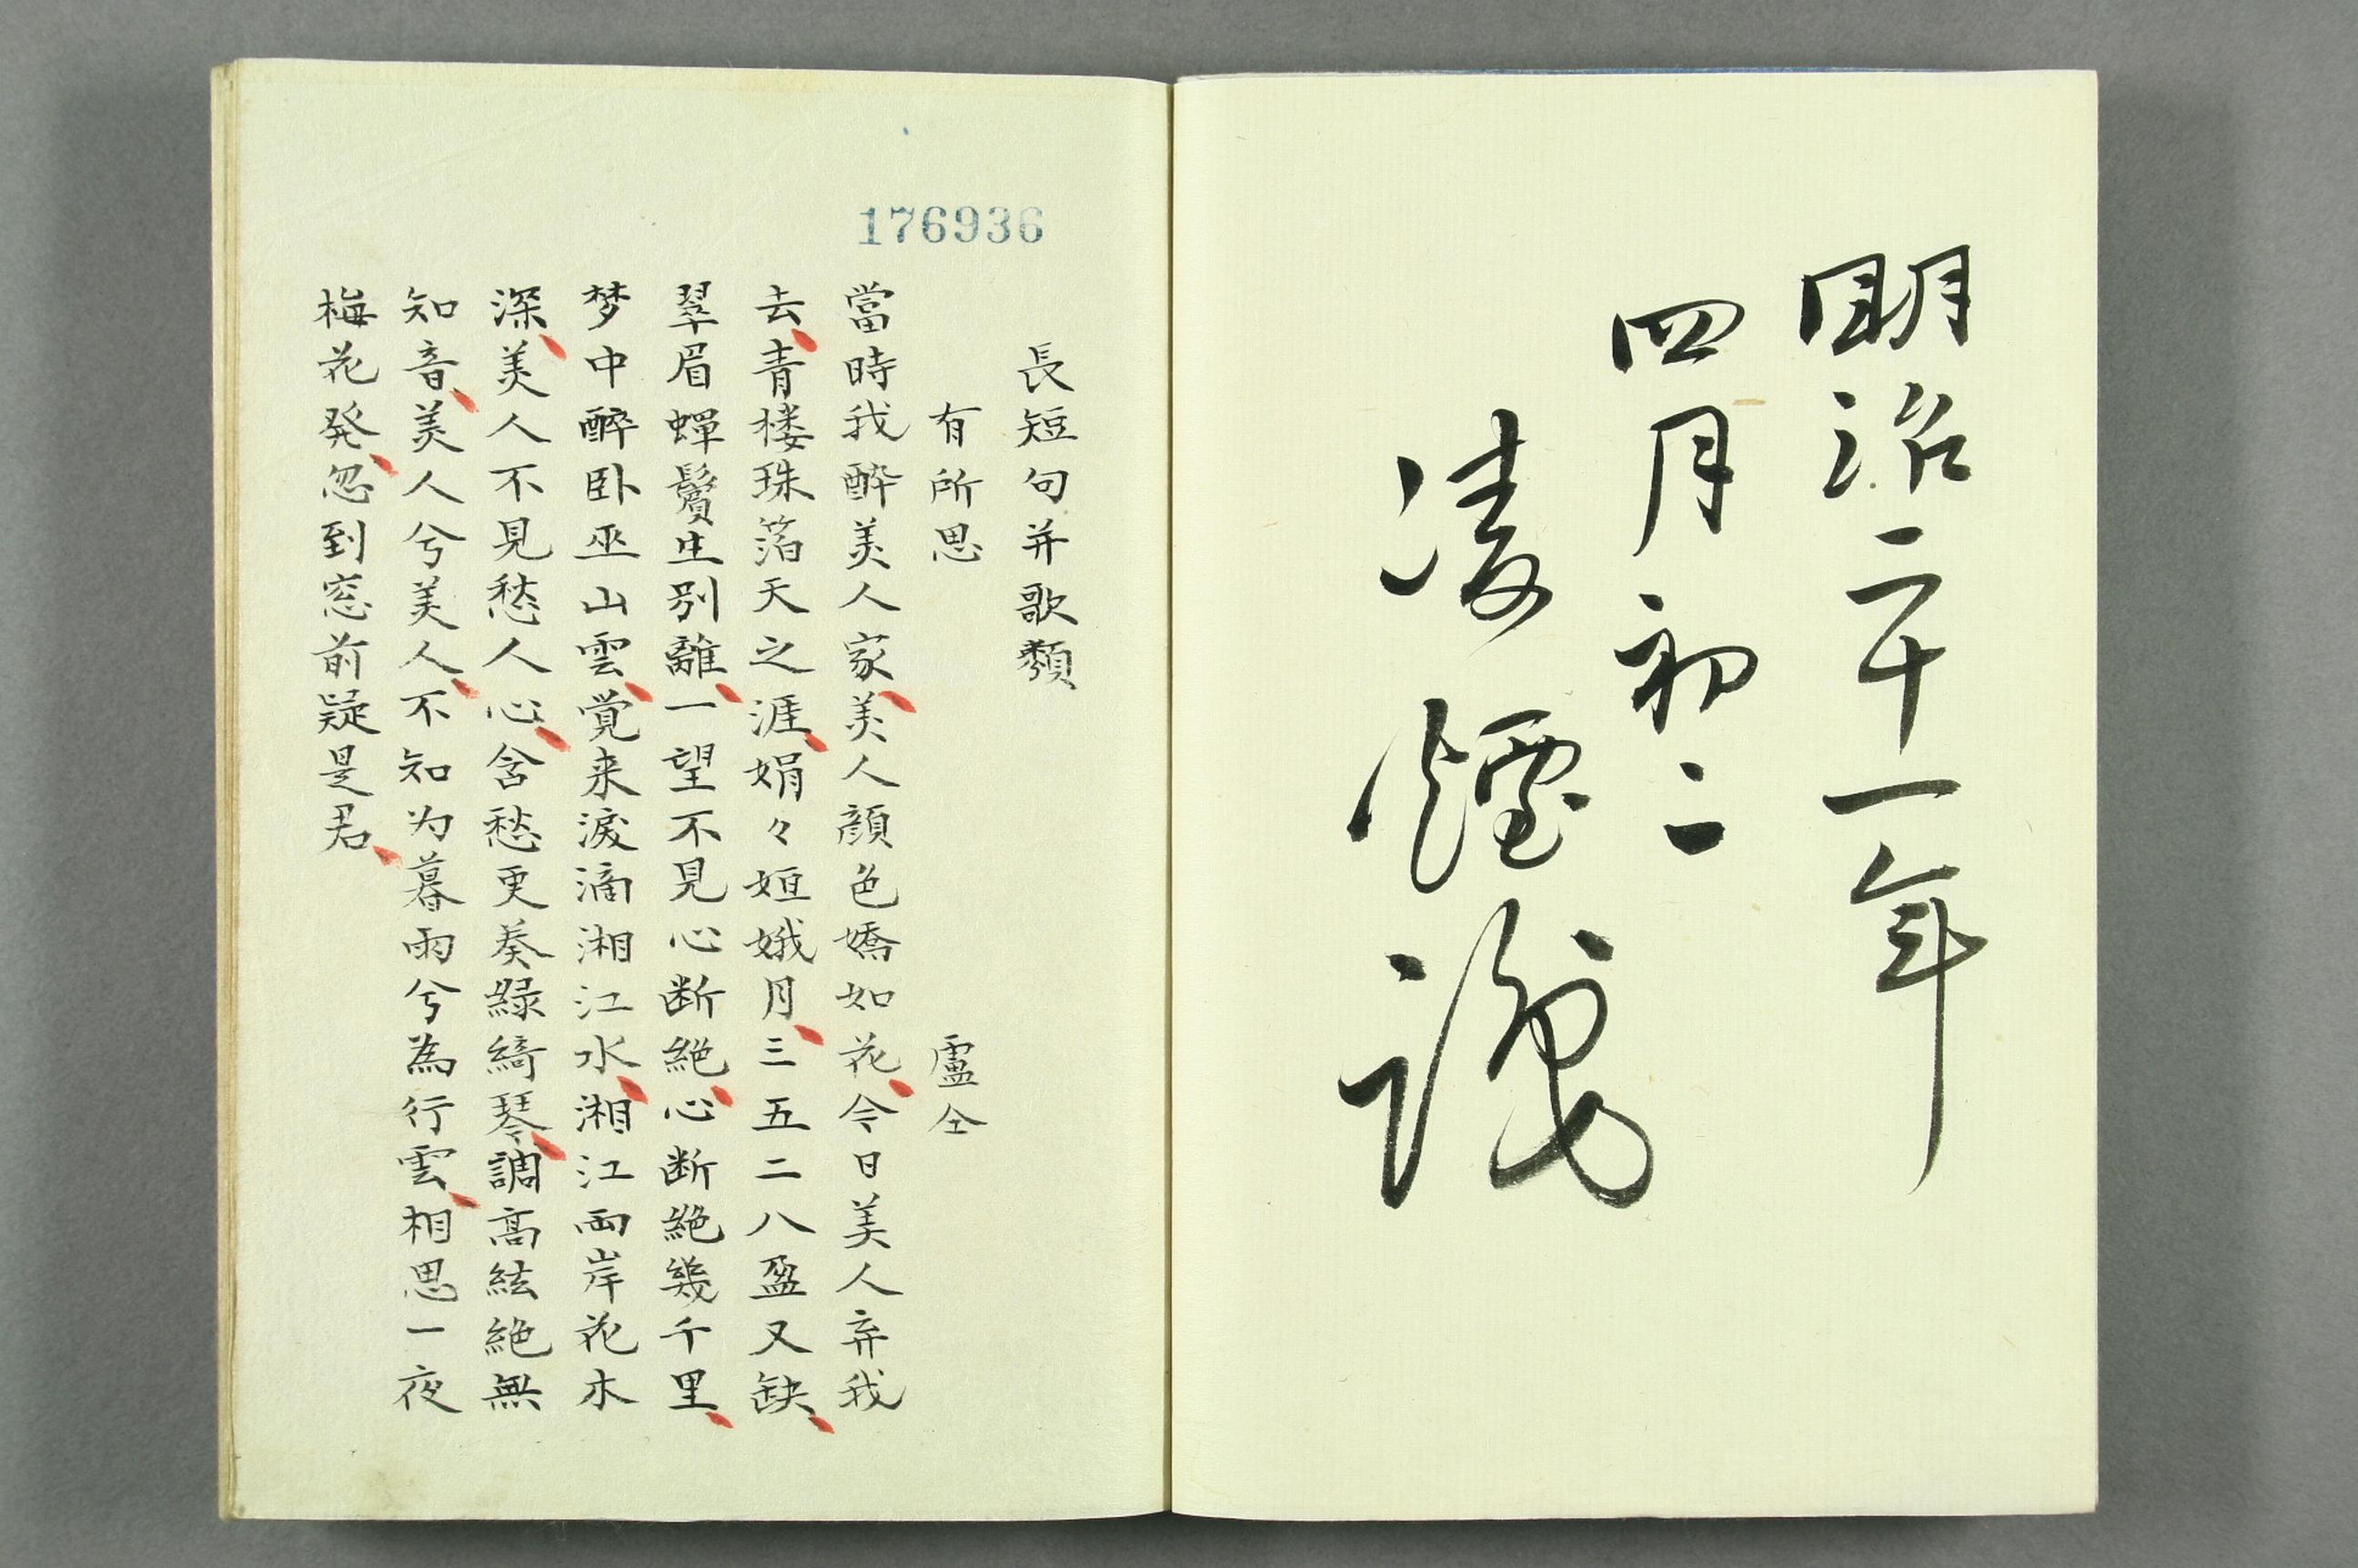 明治二十一年
四月初二
凌煙識
176936
長短句并歌類
有所思 盧仝
當時我醉美人家美人顔色嬌如花今日美人弃我
去青楼珠箔天之涯娟々姮娥月三五二八盈又缺
翠眉蟬鬢生别離一望不見心断絶心断絶幾千里
梦中醉卧巫山雲覚来淚滴湘江水湘江両岸花木
深美人不見愁人心含愁更奏緑綺琴調高絃絶無
知音美人兮美人不知为暮雨兮為行雲相思一夜
梅花発忽到窓前疑是君